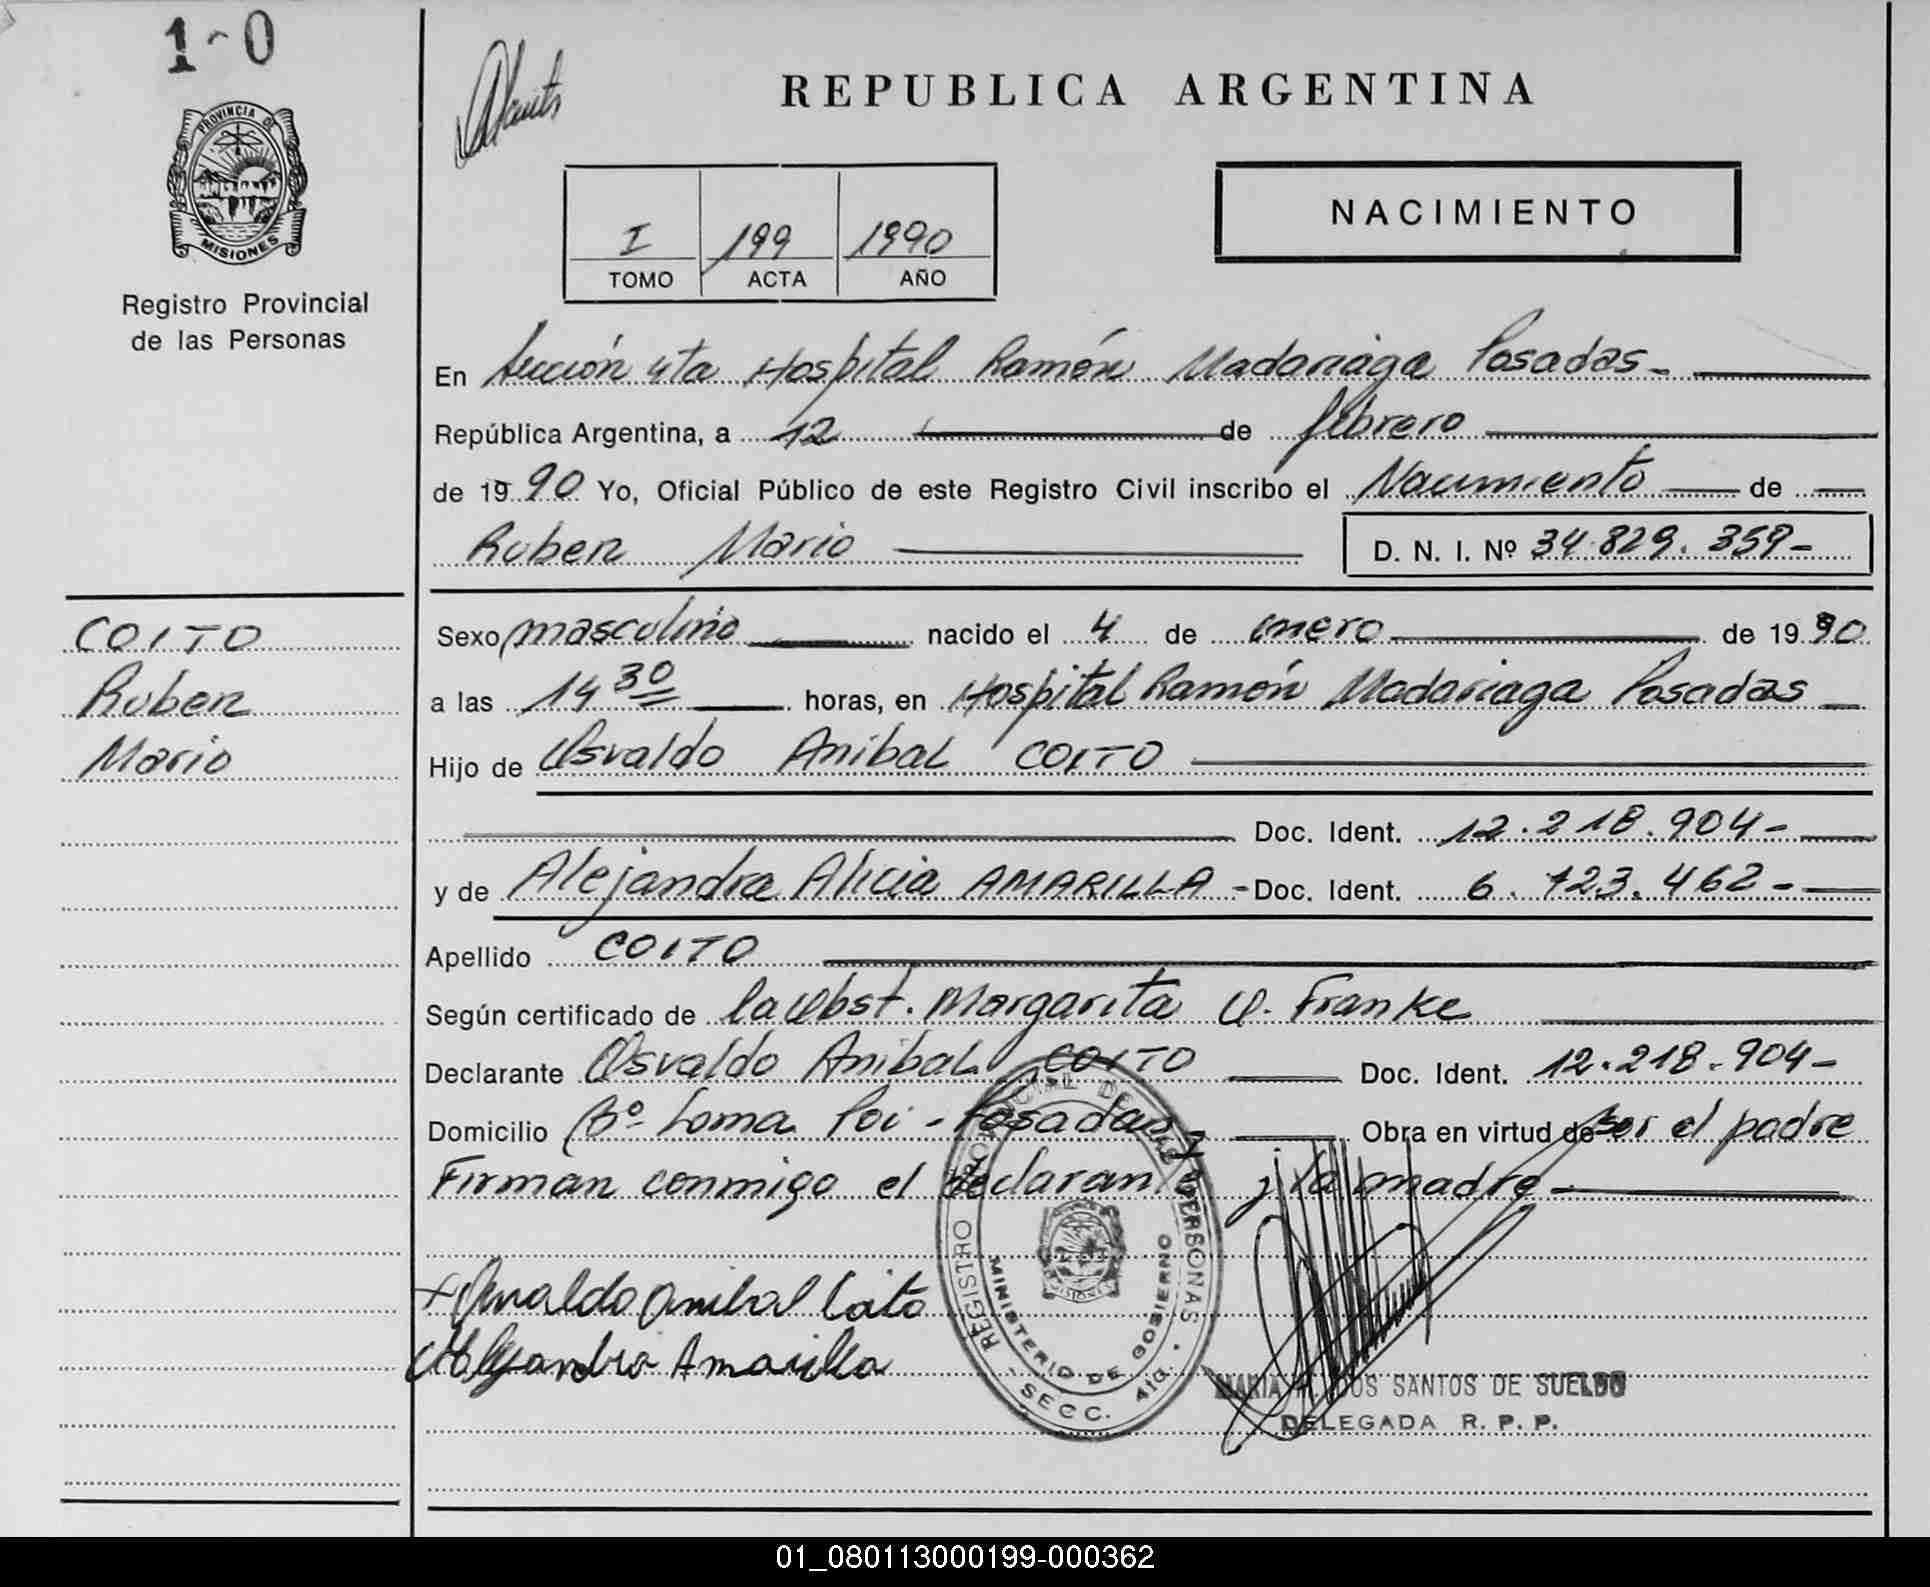 1-0
PROVINCIA DE
MISIONES
Registro Provincial
de las Personas
REPUBLICA ARGENTINA
NACIMIENTO
I 199 1990
TOMO ACTA AÑO
En Sección 4ta Hospital Ramón Madariaga Posadas.-
República Argentina, a 12 de febrero
de 1990 Yo, Oficial Público de este Registro Civil inscribo el Nacimiento de
Ruben Mario D. N. I. Nº 34.829.359-
COITO
Ruben
Mario
Sexo masculino nacido el 4 de enero de 1990
a las 14 30 horas, en Hospital Ramón Madariaga Posadas
Hijo de Osvaldo Anibal COITO
Doc. Ident. 12.218.904-
y de Alejandra Alicia AMARILLA - Doc. Ident. 6.723.462-
Apellido COITO
Según certificado de la Obst. Margarita O. Franke
Declarante Osvaldo Anibal COITO Doc. Ident. 12.218.904-
Domicilio Bº Loma Poi - Posadas - Obra en virtud de ser el padre
Firman conmigo el declarante y la madre
Osvaldo Anibal Coito
Alejandra Amarilla
REGISTRO PROVINCIAL DE LAS PERSONAS
MINISTERIO DE GOBIERNO
MISIONES
SECC. 4ta.
MARIA DOS SANTOS DE SUELDO
DELEGADA R. P. P.
01_080113000199-000362